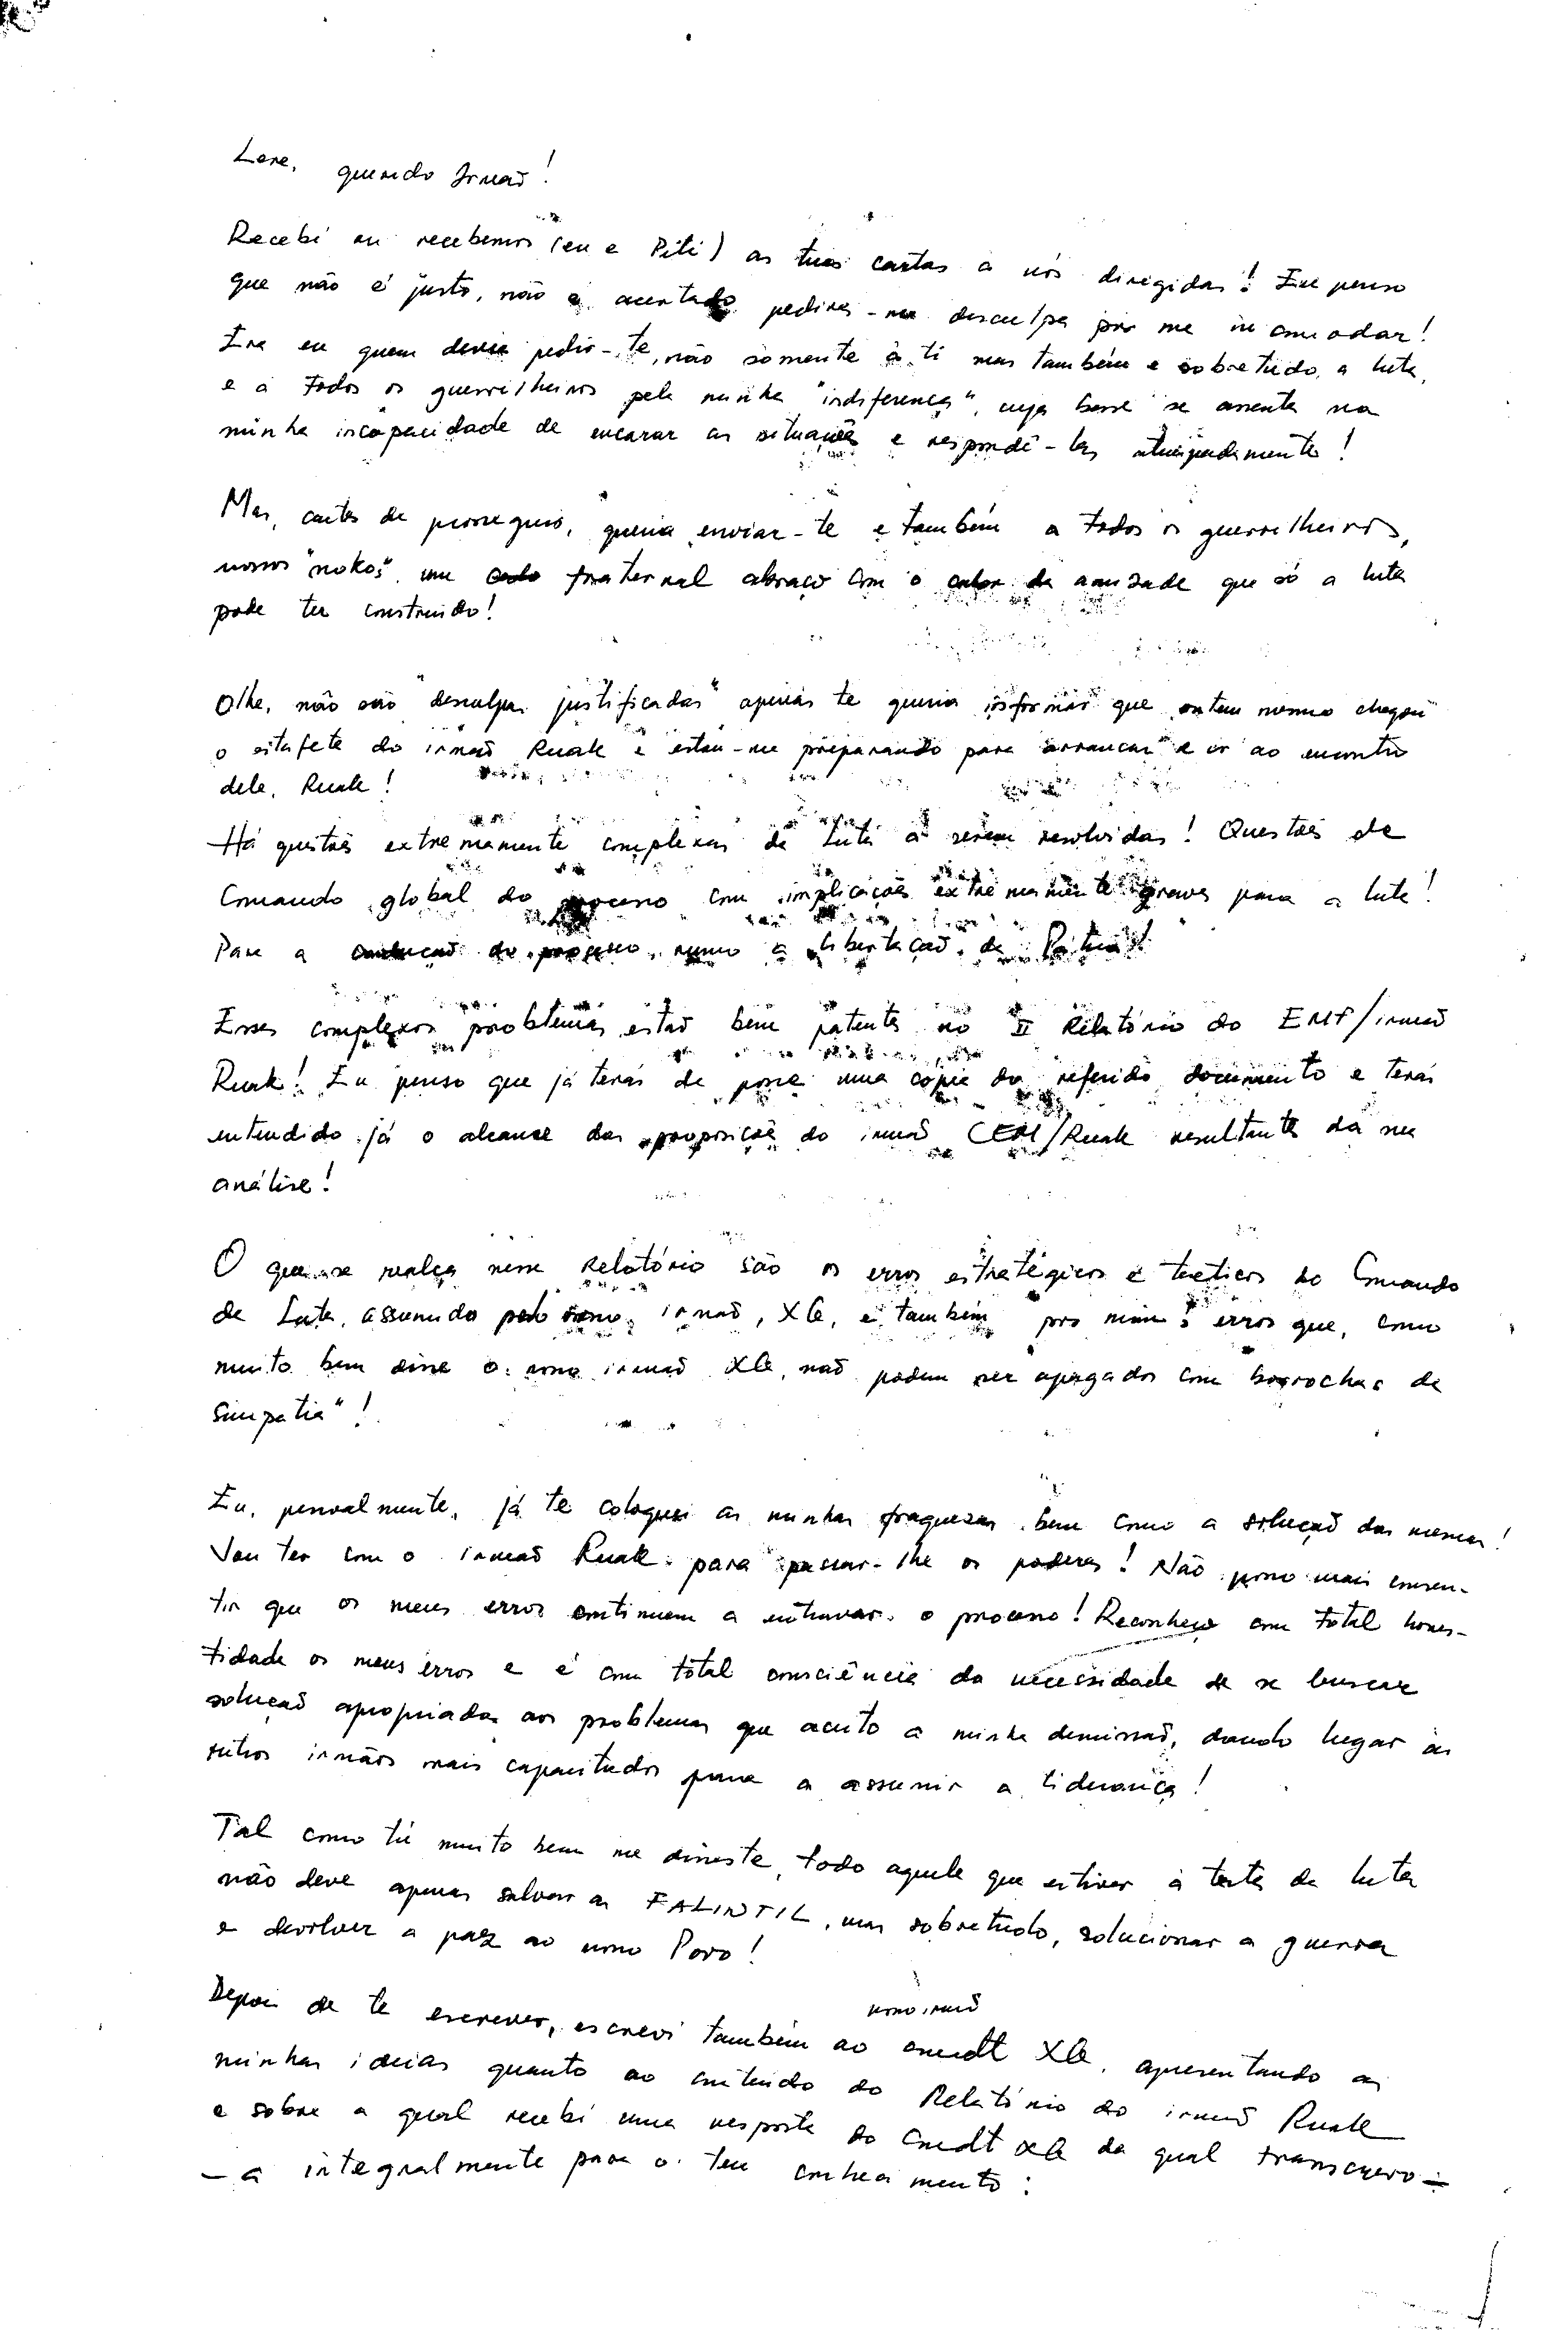 Lere, querido Irmão!
Recebi ou recebemos (eu e Piti) as tuas cartas a nós dirigidas! Eu penso
que não é justo, não é acertado pedires-me desculpa por me incomodar!
Era eu quem devia pedir-te, não somente a ti mas também e sobretudo, a luta,
e a todos os guerrilheiros pela minha "indiferença", cuja base se assenta na
minha incapacidade de encarar as situações e respondê-las atempadamente!
Mas, antes de prosseguir, queria enviar-te e também a todos os guerrilheiros,
nossos "mokos", um fraternal abraço com o calor da amizade que só a luta
pode ter construido!
Olhe, não são "desculpas justificadas" apenas te queria informar que ontem mesmo chegou
o estafeta do irmão Ruak e estou-me preparando para arrancar e ir ao encontro
dele, Ruak!
Há questões extremamente complexas da Luta a serem resolvidas! Questões de
Comando global do processo com implicações extremamente graves para a luta!
Para a condução do processo, rumo à libertação da Pátria!
Esses complexos problemas estão bem patentes no II Relatório do EMF/irmão
Ruak! Eu penso que já terás de posse uma cópia do referido documento e terás
entendido já o alcance das proposições do irmão CEM/Ruak resultantes da sua
análise!
O que se realça nesse Relatório são os erros estratégicos e tácticos do Comando
da Luta, assumido pelo nosso irmão, XG, e também por mim; erros que, como
muito bem disse o nosso irmão XG, não podem ser apagados com borrachas de
simpatia"!
Eu, pessoalmente, já te coloquei as minhas fraquezas bem como a solução das mesmas!
Vou ter com o irmão Ruak para passar-lhe os poderes! Não posso mais consen-
tir que os meus erros continuem a entravar o processo! Reconheço com total hones-
tidade os meus erros e é com total consciência da necessidade de se buscar
solução apropriada aos problemas que aceito a minha demissão, dando lugar aos
outros irmãos mais capacitados para a assumir a liderança!
Tal como tu muito bem me disseste, todo aquele que estiver à testa da luta
não deve apenas salvar as FALINTIL, mas sobretudo, solucionar a guerra
e devolver a paz ao nosso Povo!
Depois de te escrever, escrevi também ao nosso irmão cmdt XG, apresentando as
minhas ideias quanto ao conteúdo do Relatório do irmão Ruak
e sobre a qual recebi uma resposta do Cmdt XG da qual transcrevo-
-a integralmente para o teu conhecimento: